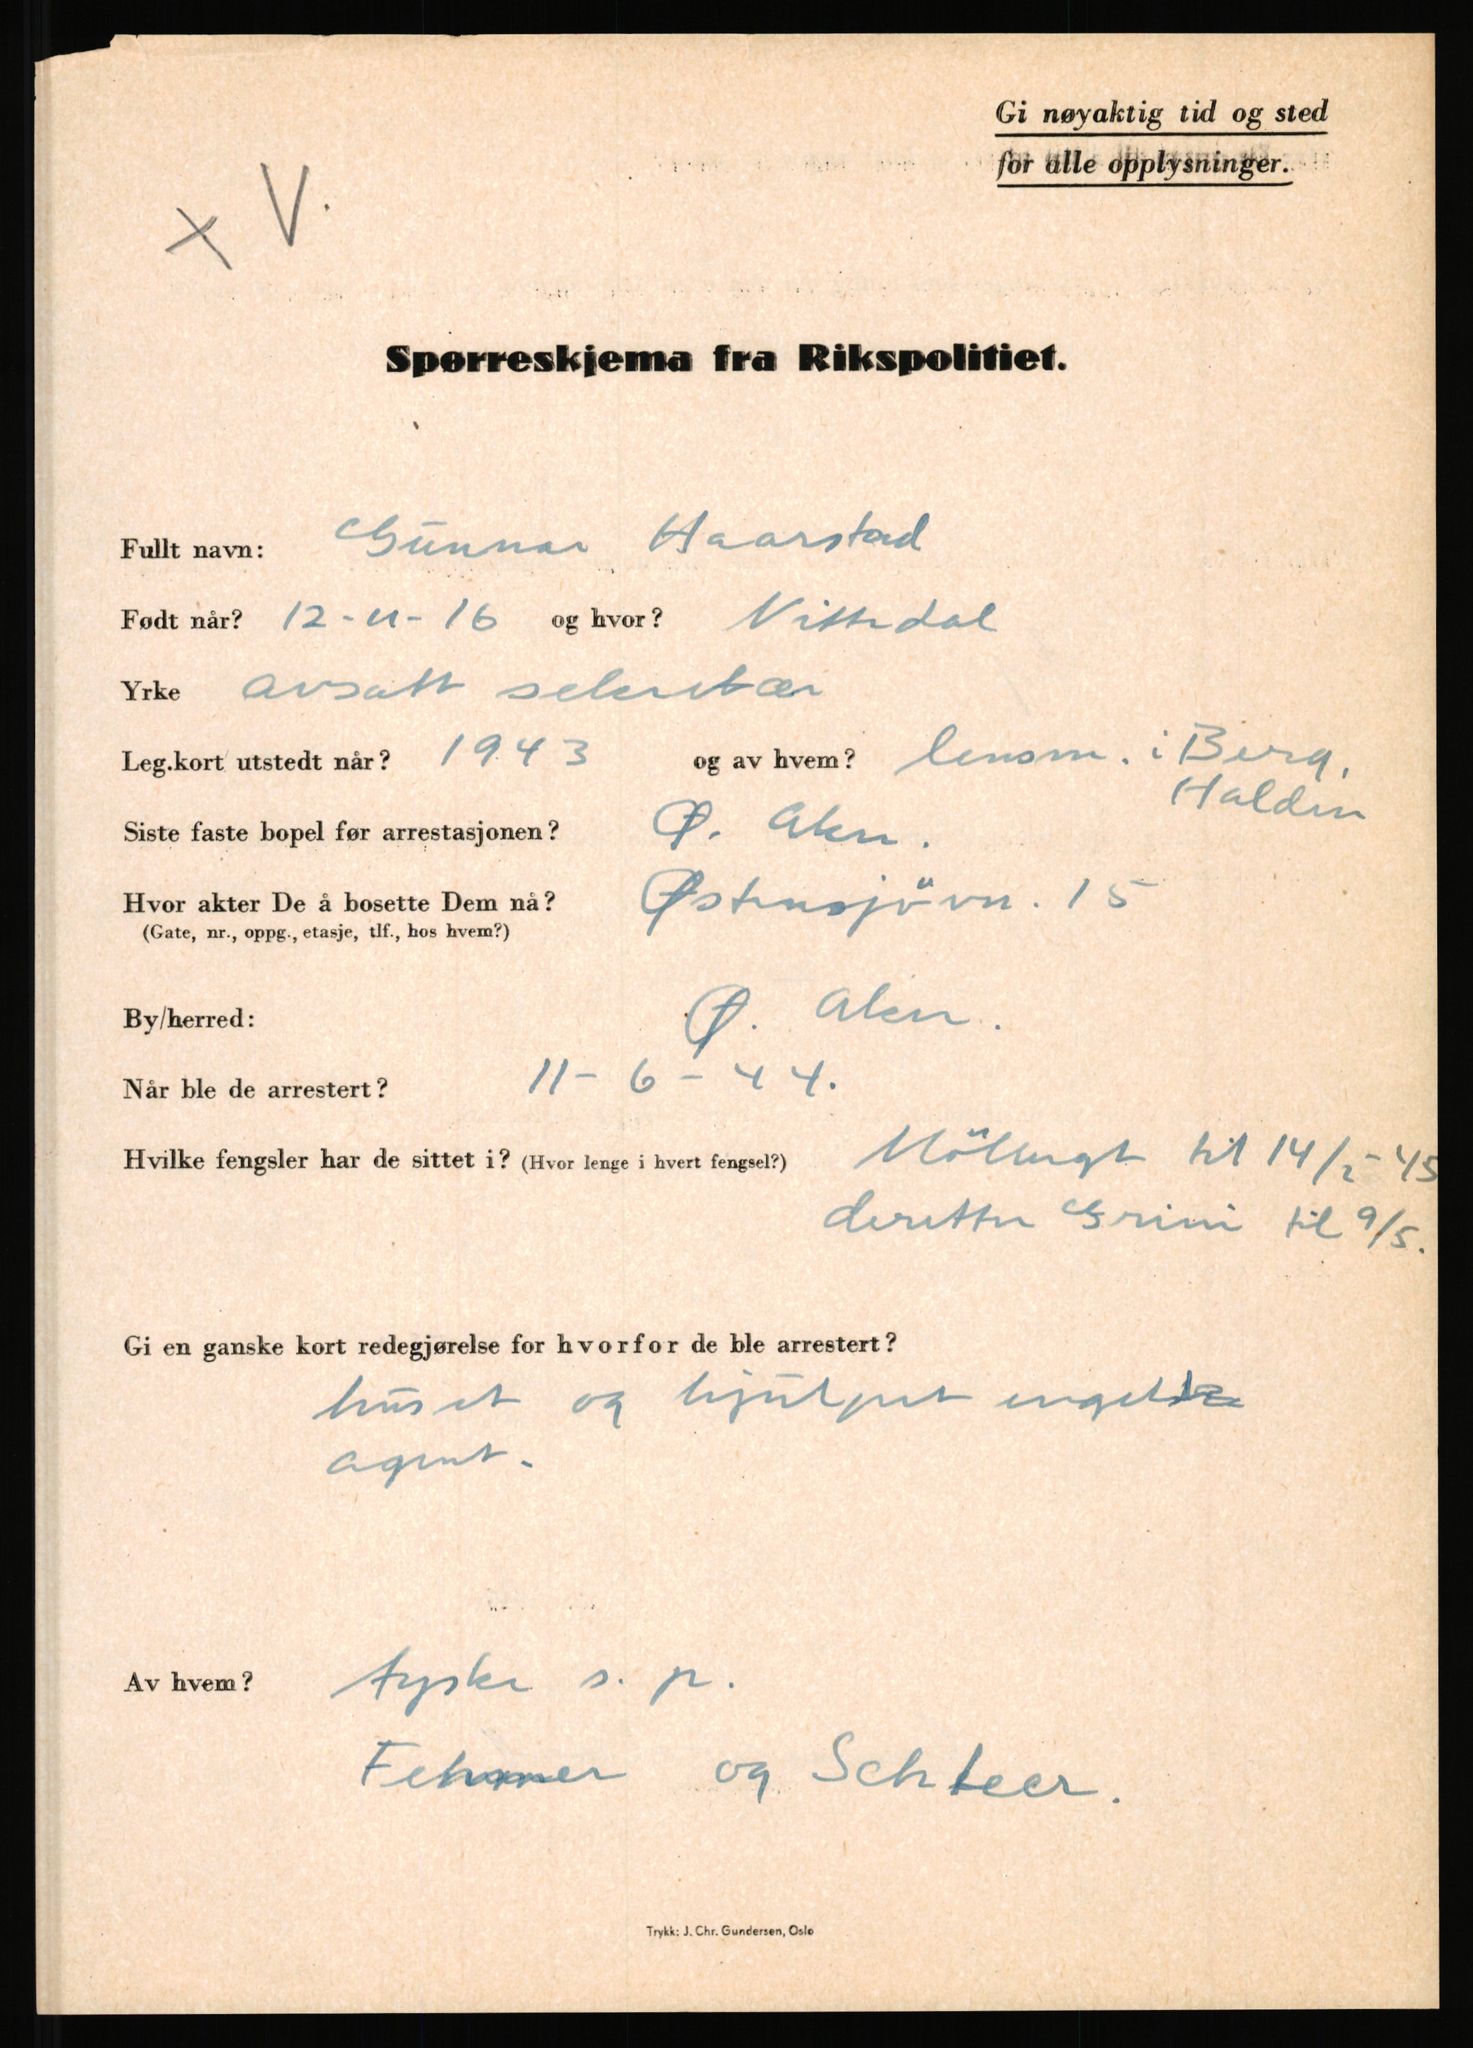 Gi nøyaktig tid og sted
for alle opplysninger.
x V.
Spørreskjema fra Rikspolitiet.
Fullt navn: Gunnar Haarstad
Født når? 12-11-16 og hvor? Nittedal
Yrke avsatt sekretær
Leg.kort utstedt når? 1943 og av hvem? lensm. i Berg,
Halden
Siste faste bopel før arrestasjonen? Ø. Aker.
Hvor akter De å bosette Dem nå? Østensjövn. 15
(Gate, nr., oppg., etasje, tlf., hos hvem?)
By/herred: Ø. Aker.
Når ble de arrestert? 11-6-44.
Hvilke fengsler har de sittet i? (Hvor lenge i hvert fengsel?) Möllergt til 14/2-45
deretter Grini til 9/5.
Gi en ganske kort redegjørelse for hvorfor de ble arrestert?
huset og hjulpet engelsk
agent.
Av hvem? tyske s. p.
Fehmer og Schleer.
Trykk: J. Chr. Gundersen, Oslo